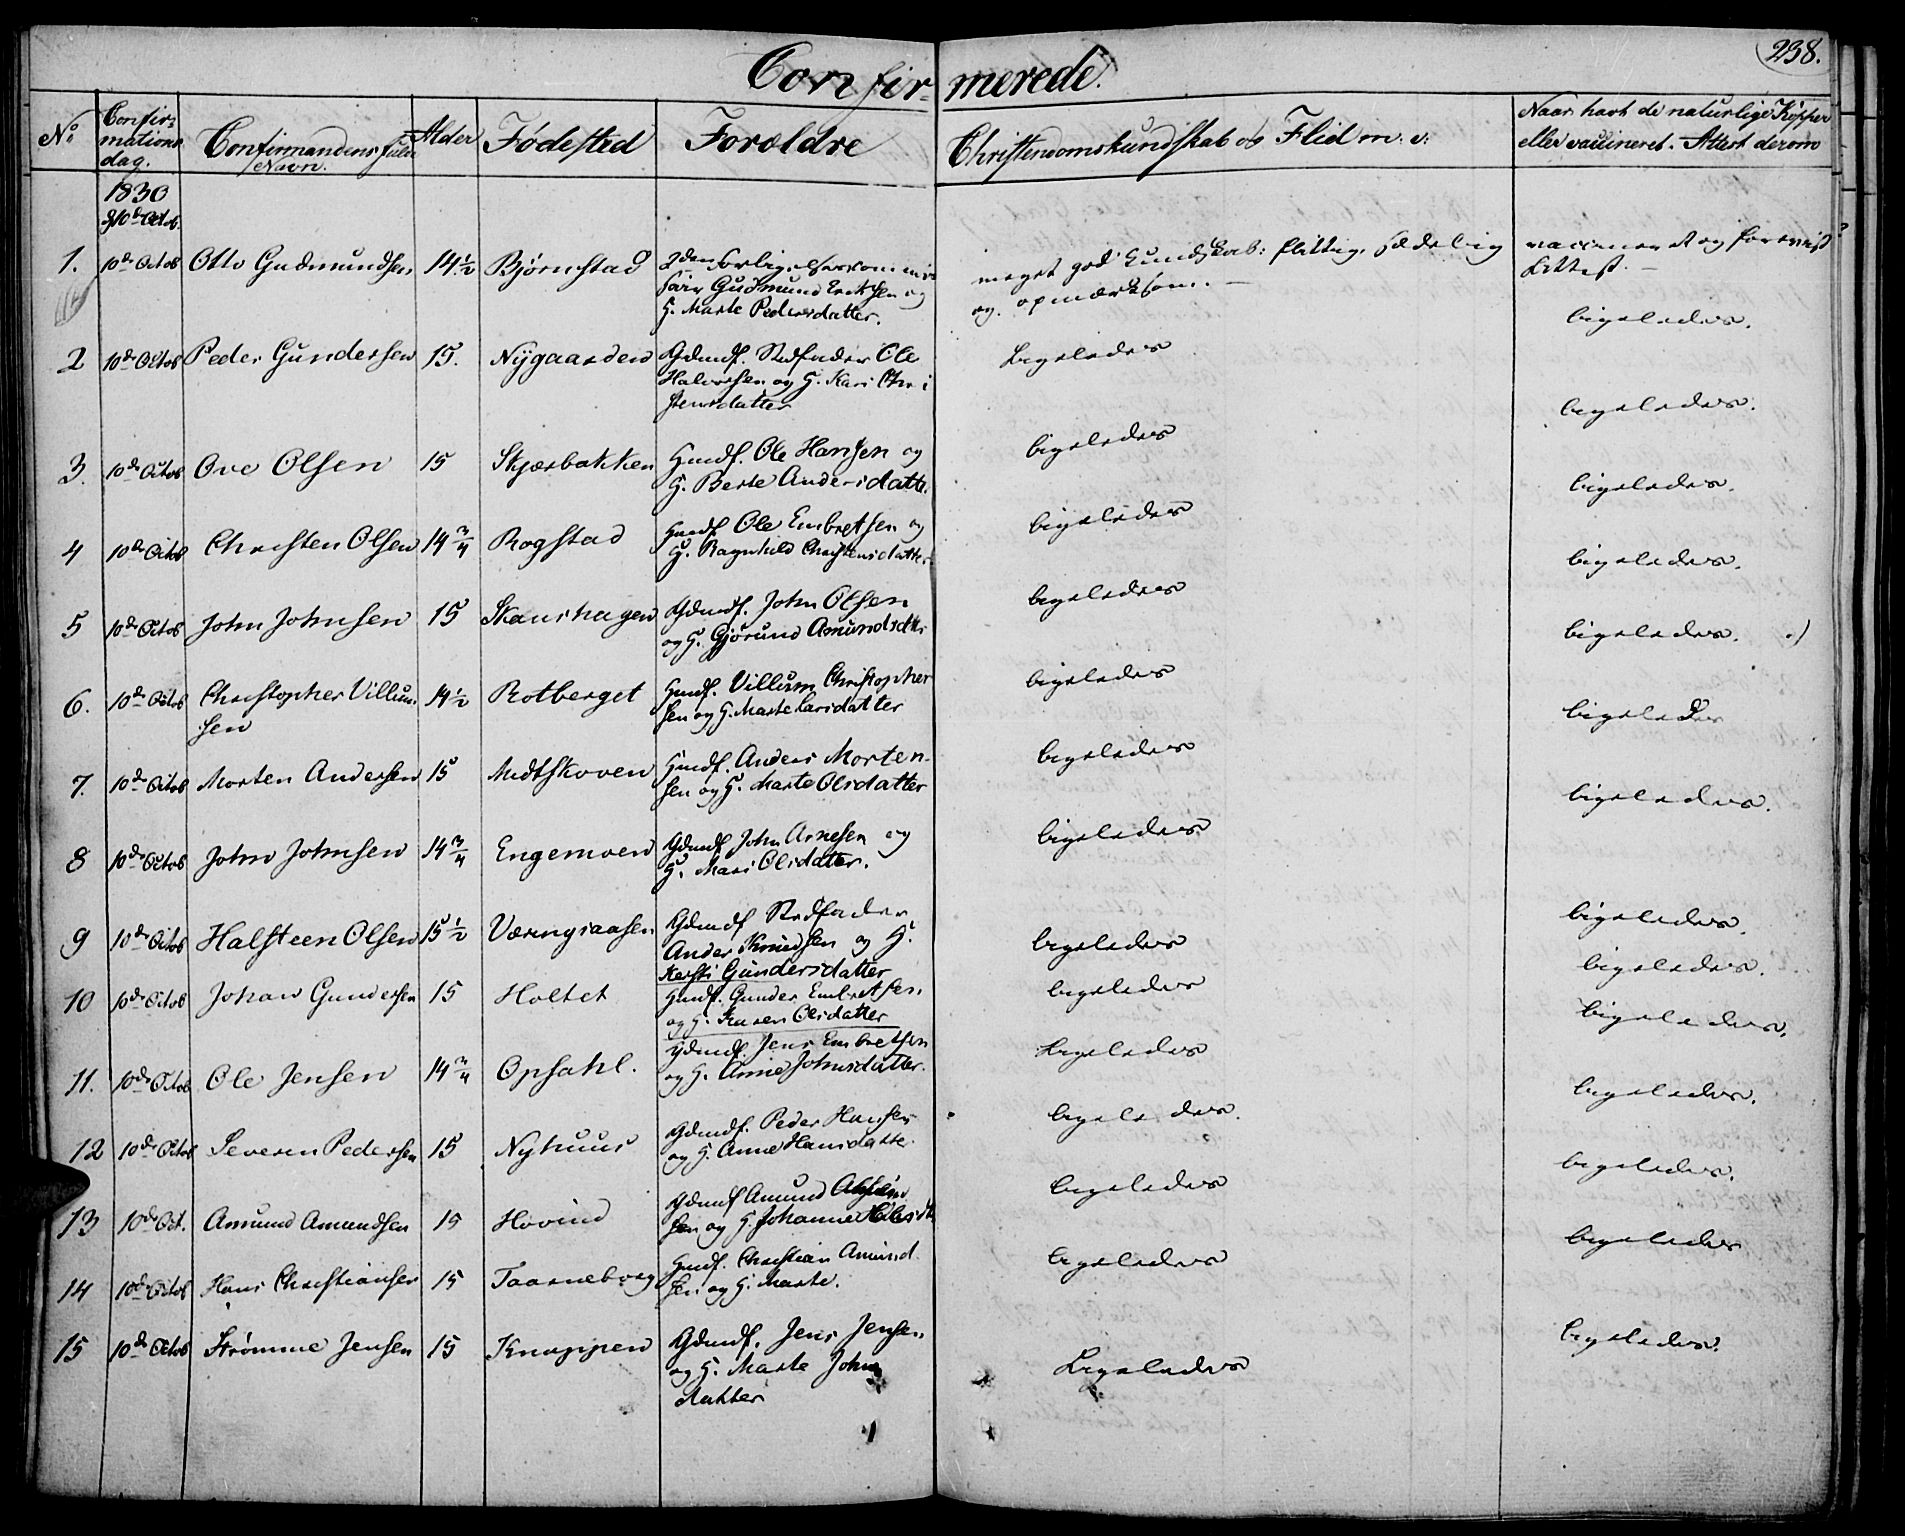 238.
Confirmerede.
No
Confirmations dag.
Confirmandens fulde Navn.
Alder
Fødested
Forældre
Christendomskundskab og Flid m. v.
Naar havt de naturlige Kopper
eller vaccineret. Attest derom
1830
10de Octob.
1. 10de Octob Otto Gudmundsen 14 1/2 Bjørnstad
Gudmund Eriksen og
H. Marte Pedersdatter.
meget god Kundskab: flittig, sædelig
og opmærksom. —
vaccineret og forevist
Attest. —
2 10de Octob Peder Gundersen 15. Nygaarden Gdmdf. Stedfader Ole
Halvorsen og H. Kari Chri
stensdatter
Ligeledes
ligeledes.
3. 10de Octob Ove Olsen 15 Skjærbakken Hmdf. Ole Hansen og
H. Berte Andersdatte.
ligeledes
ligeledes.
4 10de Octob Christen Olsen 14 3/4 Rogstad Hmdf Ole Embretsen og
H. Ragnhild Christensdatter
ligeledes
ligeledes.
5 10de Octob John Johnsen 15 Skanshagen Gdmdf. John Olsen
og H. Gjørund Amundsdtr
ligeledes
ligeledes.
6. 10de Octob Christopher Villum-
sen 14 1/2 Rotberget Hmdf. Villum Christopher
sen og H. Marte Larsdatter
ligeledes
ligeledes.
7. 10de Octob Morten Andersen 15 Midtskoven Hmdf. Anders Morten-
sen og H. Marte Olsdatter
ligeledes
ligeledes
8 10de Octob John Johnsen 14 3/4 Engemoen Gdmdf John Arnesen og
H. Mari Olsdatter.
ligeledes
ligeledes.
9 10de Octob Halsteen Olsen 15 1/2 Væringsaasen Gdmdf Stedfader
Ander Knudsen og H.
Kersti Gundersdatter
ligeledes
ligeledes.
10 10de Octob Johan Gundersen 15 Holtet Hmdf. Gunder Embretsen
og H. Karen Olsdatter
ligeledes
ligeledes.
11. 10de Octob Ole Jensen 14 3/4 Opsahl. Gdmdf. Jens Embretsen
og H. Anne Johnsdatter.
Ligeledes
ligeledes.
12 10de Octob Severen Pedersen 15 Nyhuus Gdmdf. Peder Hansen
og H. Anne Hansdatte.
ligeledes.
ligeledes.
13 10de Oct. Amund Amundsen 15 Hovind Gdmdf Amund
sen og H. Johanne
ligeledes
ligeledes.
14 10de Octob Hans Christiansen 15 Taarneborg Hmdf. Christian Amund
sen og H. Marte.
ligeledes
ligeledes
15 10de Octob Strømme Jensen 15 Knappen Gdmdf. Jens Jensen
og H. Marte Johns
datter
Ligeledes
ligeledes.